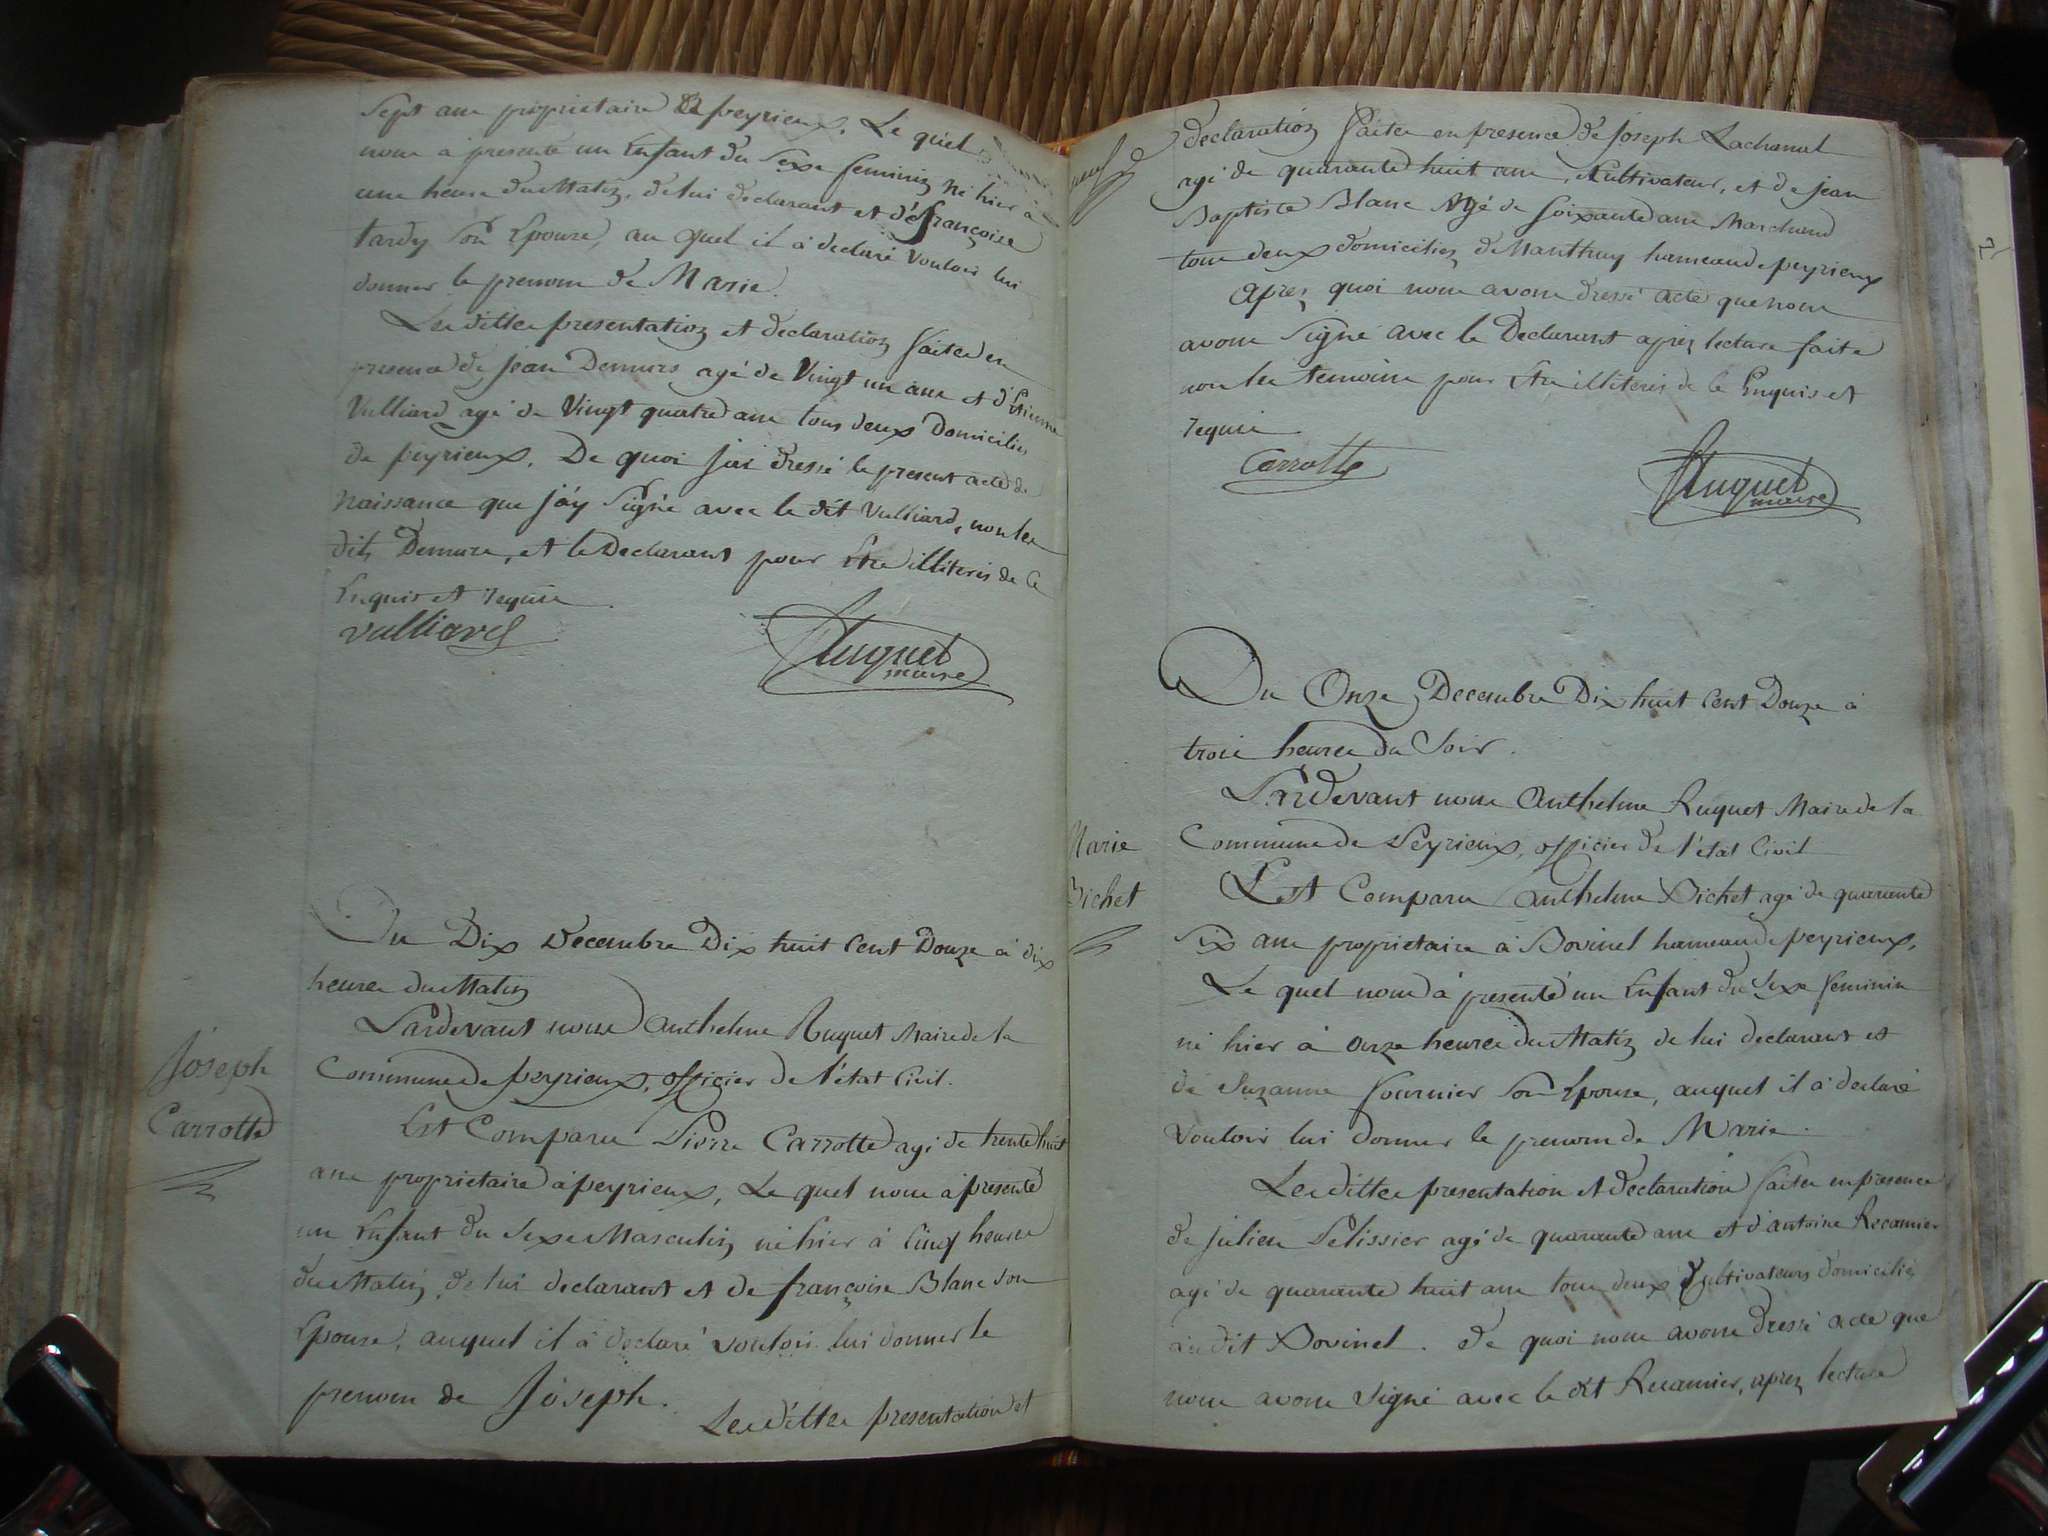 Sept ans proprietaire à peyrieux. Le quel
nous à presenté un Enfant du Sexe feminin né hier à
une heure du Matin, de lui declarant et de françoise
tardy Son Epouse, au quel il à declaré Vouloir lui
donner le prenom de Marie.
Les dittes presentation et declaration faites en
presence de jean Demurs agé de Vingt un ans et d'Etienne
Vulliard agé de Vingt quatre ans tous deux Domiciliés
de peyrieux. De quoi j'ai dressé le present acte de
Naissance que j'ay Signé avec le dit Vulliard, non les
dits Demurs, et le Declarant pour Etre illiterés de ce
Enquis et requis
vulliard
Ruguet
maire
Du Dix Decembre Dix huit Cent Douze à dix
heures du Matin
Pardevant nous Anthelme Ruguet Maire de la
Commune de peyrieux, officier de l'état Civil.
Joseph
Carrotte
Est Comparu Pierre Carrotte agé de trente huit
ans proprietaire à peyrieux, Le quel nous à presenté
un Enfant du Sexe Masculin né hier à Cinq heures
du Matin, de lui declarant et de françoise Blanc son
Epouse, auquel il à declaré vouloir lui donner le
prenom de Joseph.
Les dittes presentation et
declaration faites en presence de Joseph Lachanal
agé de quarante huit ans, Cultivateur, et de jean
Baptiste Blanc Agé de Soixante ans Marchand
tous deux domiciliés de Manthuy hameau de peyrieux
Après quoi nous avons dressé acte que nous
avons Signé avec le Declarant après lecture faite
non les temoins pour Etre illiterés de le Enquis et
requis
Carrotte
Ruguet
maire
Du Onze Decembre Dix huit Cent Douze à
trois heures du Soir.
Pardevant nous Anthelme Ruguet Maire de la
Commune de Peyrieux, officier de l'état Civil
Marie
Bichet
Est Comparu Anthelme Bichet agé de quarante
Six ans proprietaire à Bovinel hameau de peyrieux,
Le quel nous à presenté un Enfant du Sexe feminin
né hier à onze heures du Matin de lui declarant et
de Suzanne fournier Son Epouse, auquel il à declaré
Vouloir lui donner le prenom de Marie.
Les dittes presentation et declaration faites en presence
de julien Pelissier agé de quarante ans et d'antoine Recamier
agé de quarante huit ans tous deux Cultivateurs domiciliés
au dit Bovinel. De quoi nous avons dressé acte que
nous avons signé avec le dit Recamier, après lecture